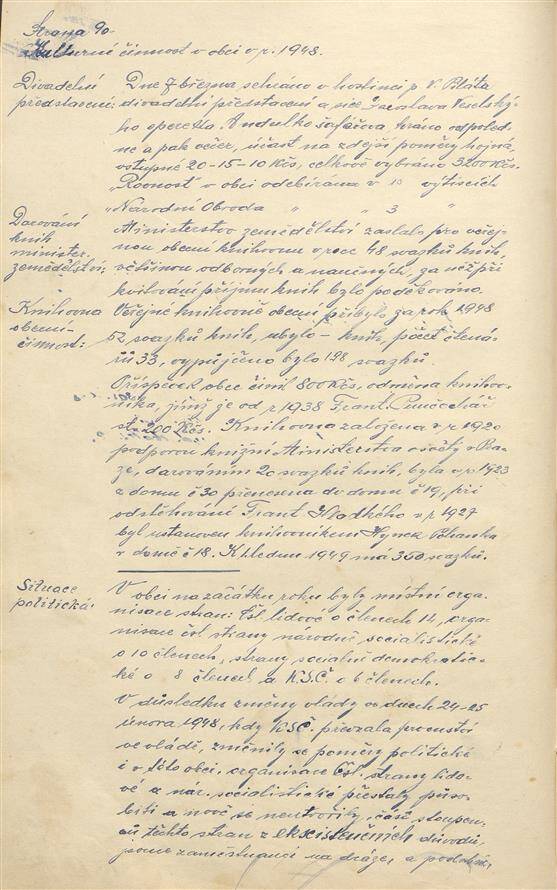 Strana 90.
Kulturní činnost v obci v r. 1948.
Divadelní představení:
Dne 7 března sehráno v hostinci p. V. Bláta
divadelní představení a sice Jaroslava Veselský-
ho opereta Andulko šafářova, hráno odpoled-
ne a pak večer, účast na zdejší poměry hojná,
vstupné 20-15-10 Kčs, celkově vybráno 3200 Kčs.
„Rovnost" v obci odebírána v 10 výtiscích
„Národní Obroda " " 3 "
Darování
knih
minister.
zemědělství:
Ministerstvo zemědělství zaslalo pro veřej-
nou obecní knihovnu v roce 48 svazků knih,
většinou odborných a naučných, za něž při
kvitování příjmu knih bylo poděkováno.
Knihovna
obecní-
činnost:
Veřejné knihovně obecní přibylo za rok 1948
52 svazků knih, ubylo – knih, počet čtená-
řů 33, vypůjčeno bylo 198 svazků.
Příspěvek obce činil 800 Kčs, odměna knihov-
níka, jímž je od r 1938 Frant.
200 Kčs. Knihovna založena v r 1920
podporou knižní Ministerstva osvěty v Pra-
ze, darováním 20 svazků knih, byla v r 1923
z domu č 30 přenesena do domu č 19, při
odstěhování Frant. Hladkého v r 1927
byl ustanoven knihovníkem Hynek
v domě č 18. K 1. lednu 1949 má 350 svazků.
Situace
politická:
V obci na začátku roku byly místní orga-
nisace stran: Čsl. lidové o členech 14, orga-
nisace čsl strany národně socialistické
o 10 členech, strany sociálně demokratic-
ké o 8 členech a K.S.Č. o 6 členech.
V důsledku změny vlády ve dnech 24-25
února 1948, kdy KSČ. převzala prvenství
ve vládě, změnily se poměry politické
i v této obci, organisace Čsl. strany lido-
vé a nár. socialistické přestaly půso-
biti a nově se neutvořily, část stoupen-
ců těchto stran z eksistenčních důvodů,
jsouce zaměstnanci na dráze, a podobně,